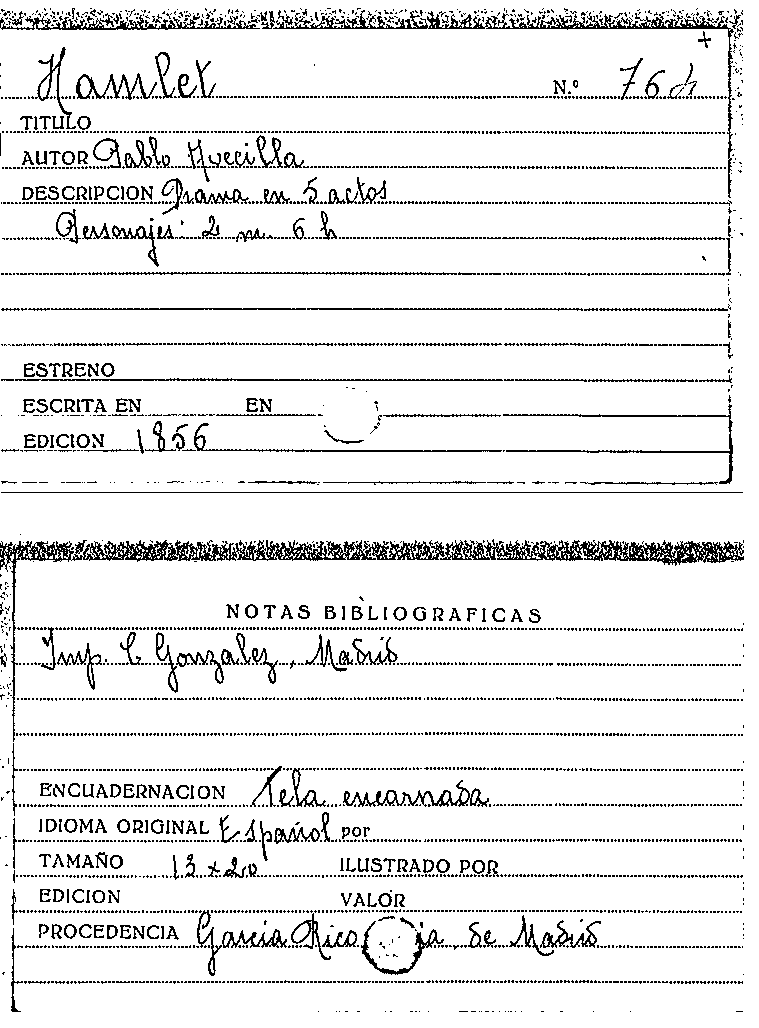 +
Hamlet N.º 764
TITULO
AUTOR Pablo Avecilla
DESCRIPCION Drama en 5 actos
Personajes: 2 m. 6 h
ESTRENO
ESCRITA EN EN
EDICION 1856
NOTAS BIBLIOGRAFICAS
Imp. C Gonzalez, Madrid
ENCUADERNACION Tela encarnada
IDIOMA ORIGINAL Español por
TAMAÑO 13 x 20 ILUSTRADO POR
EDICION VALOR
PROCEDENCIA Garcia Rico ia. de Madrid